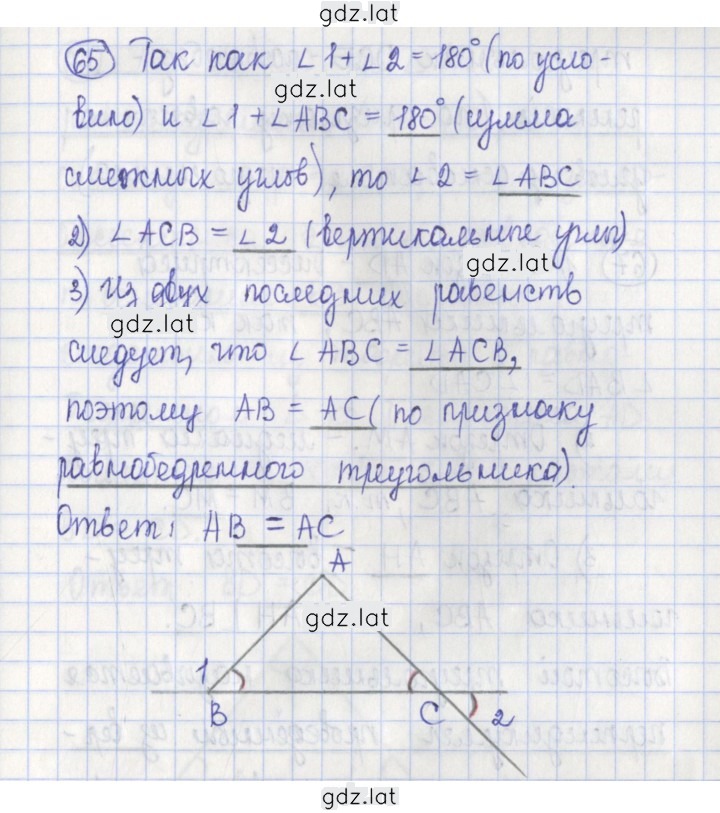 gdz.lat
65 Так как ∠1+∠2=180° (по усло-
gdz.lat
вию) и ∠1+∠ABC = 180° (сумма
смежных углов), то ∠2 = ∠ABC
2) ∠ACB = ∠2 (вертикальные углы)
gdz.lat
3) Из двух последних равенств
gdz.lat
следует, что ∠ABC = ∠ACB,
поэтому AB = AC (по признаку
равнобедренного треугольника).
Ответ: AB = AC
A
gdz.lat
1
B C 2
gdz.lat